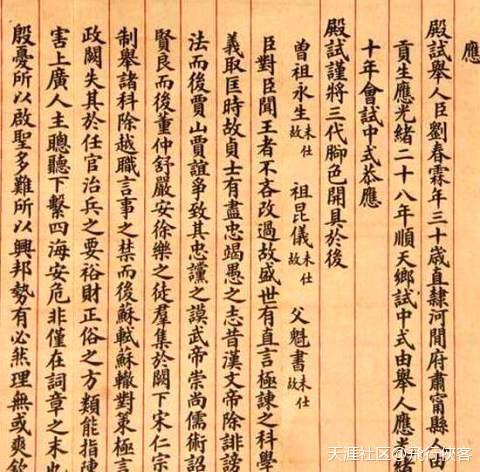 應
殿試舉人臣劉春霖年三十歲直隸河間府肅甯縣人由
貢生應光緒二十八年順天鄉試中式由舉人應
十年會試中式恭應
殿試謹將三代腳色開具於後
曾祖永生未仕故 祖昆儀未仕故 父魁書未仕故
臣對臣聞王者不吝改過故盛世有直言極諫之科學
義取匡時故貞士有盡忠竭愚之志昔漢文帝除誹謗
法而後賈山賈誼爭致其忠讜之謨武帝崇尚儒術詔
賢良而後董仲舒嚴安徐樂之徒羣集於闕下宋仁宗
制舉諸科除越職言事之禁而後蘇軾蘇轍對策極言
政闕失其於任官治兵之要裕財正俗之方類能指陳
害上廣人主聰聽下繫四海安危非僅在詞章之末
殷憂所以啟聖多難所以興邦勢有必然理無或爽
天涯社区@飛行俠客